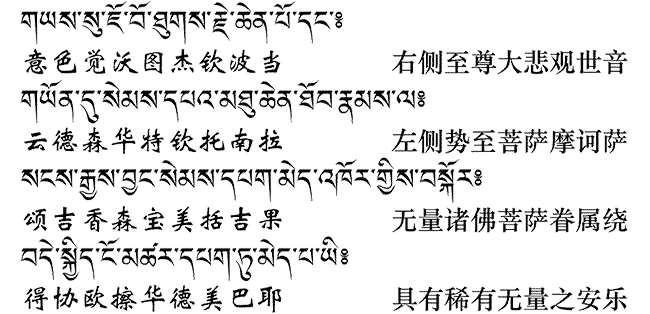 གཡས་སུ་ཇོ་བོ་ཐུགས་རྗེ་ཆེན་པོ་དང་༔
意色觉沃图杰钦波当 右侧至尊大悲观世音
གཡོན་དུ་སེམས་དཔའ་མཐུ་ཆེན་ཐོབ་རྣམས་ལ༔
云德森华特钦托南拉 左侧势至菩萨摩诃萨
སངས་རྒྱས་བྱང་སེམས་དཔག་མེད་འཁོར་གྱིས་བསྐོར༔
颂吉香森宝美括吉果 无量诸佛菩萨眷属绕
བདེ་སྐྱིད་ངོ་མཚར་དཔག་ཏུ་མེད་པ་ཡི༔
得协欧擦华德美巴耶 具有稀有无量之安乐